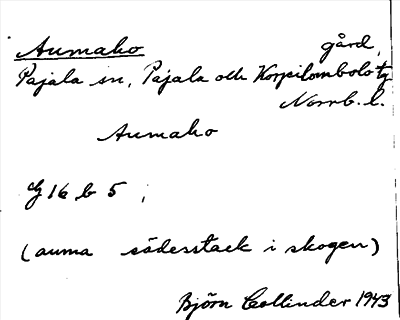 Aumaho gård,
Pajala sn, Pajala och Korpilombolo tg
Norrb. l.
Aumaho
G 16 b 5 ;
(auma sädesstack i skogen)
Björn Collinder 1943